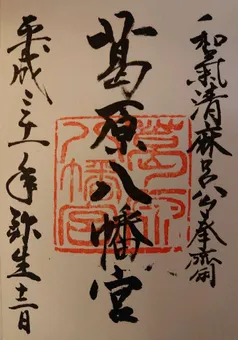 和氣清麻呂公奉斎
葛原八幡宮
平成三十一年弥生十一日